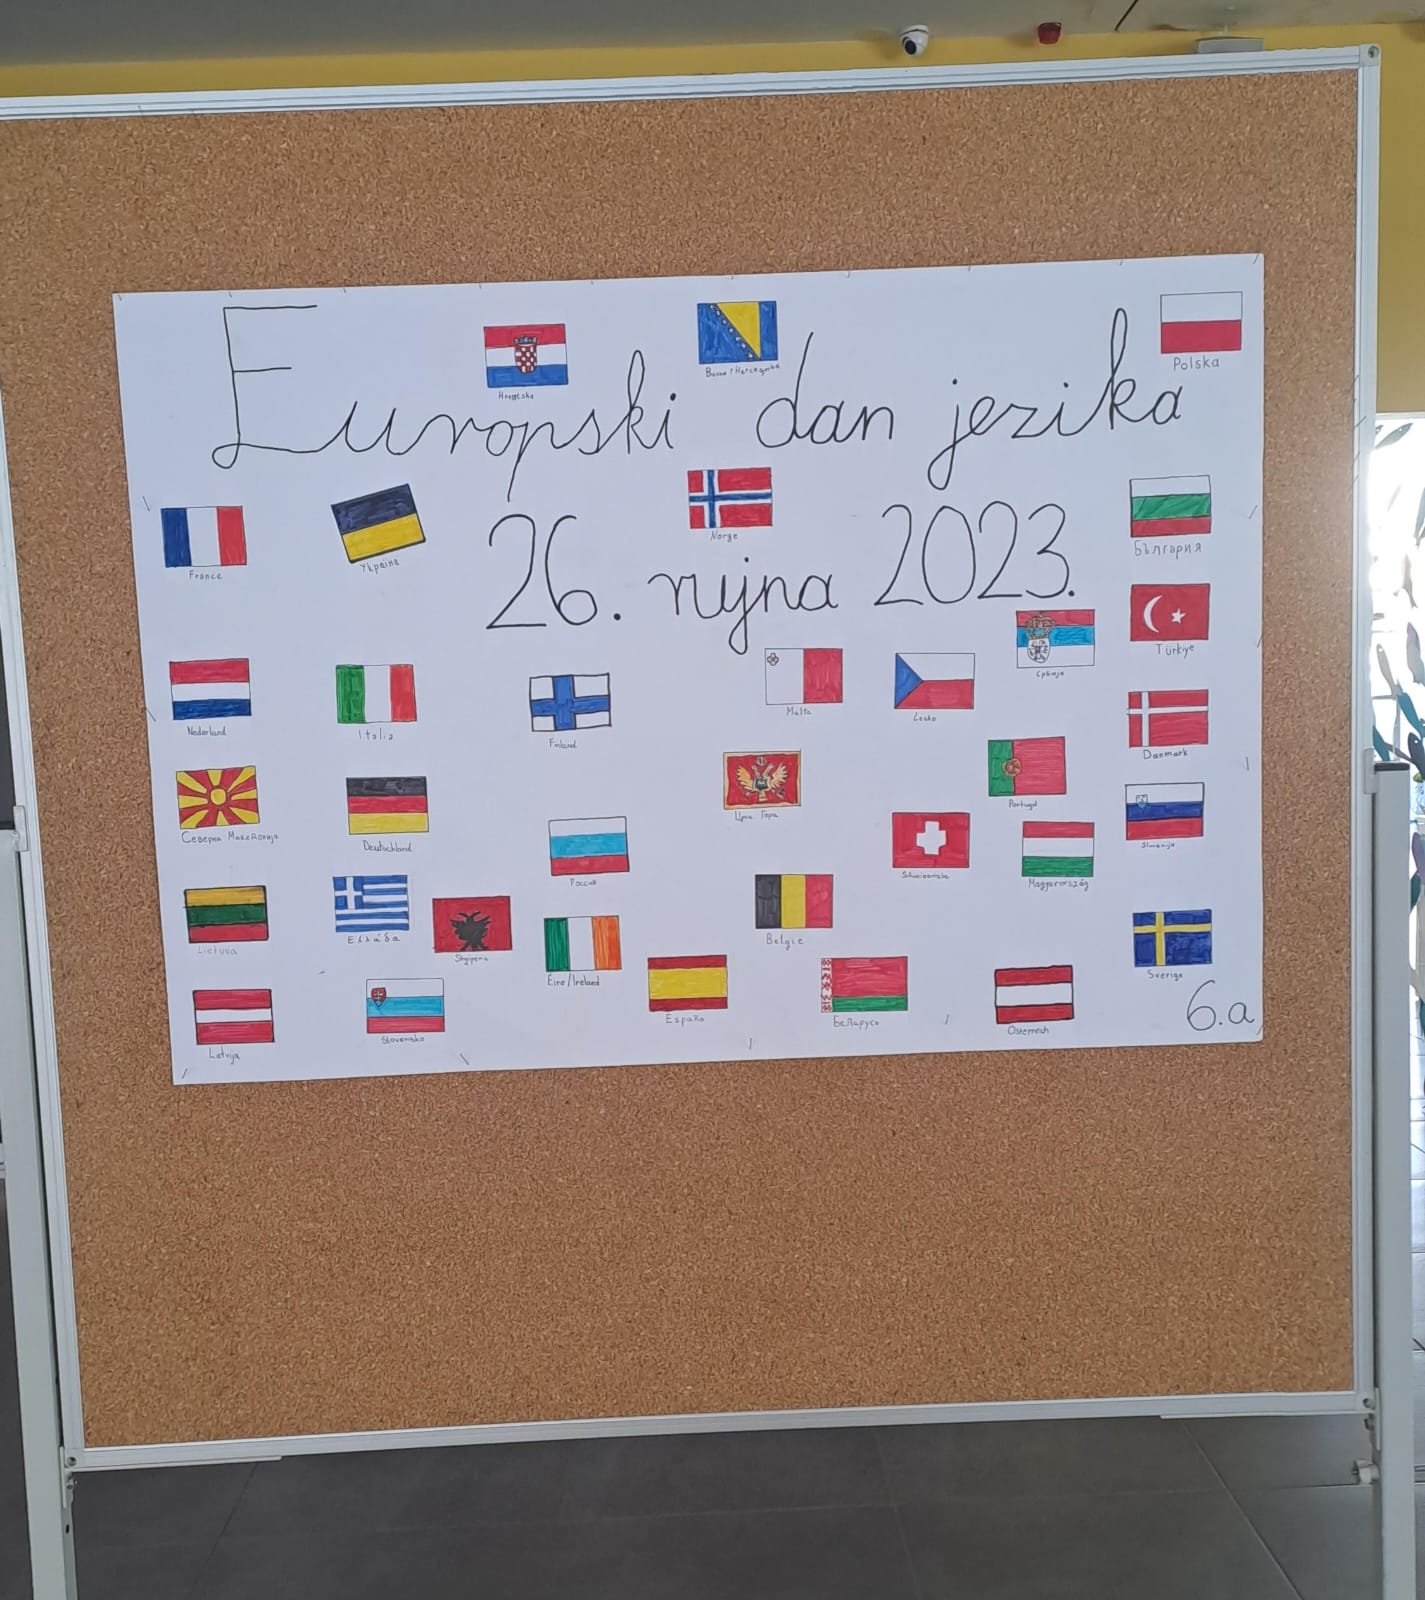 Hrvatska
Bosna i Hercegovina
Polska
Europski dan jezika
Norge
България
France
Україна
26. rujna 2023.
Türkiye
Србија
Malta
Česko
Nederland
Italia
Finland
Danmark
Црна Гора
Portugal
Северна Македонија
Deutschland
Slovenija
Россия
Magyarország
Ελλάδα
België
Lietuva
Shqipëria
Éire/Ireland
Sverige
España
Беларусь
Österreich
Slovensko
Latvija
6.a